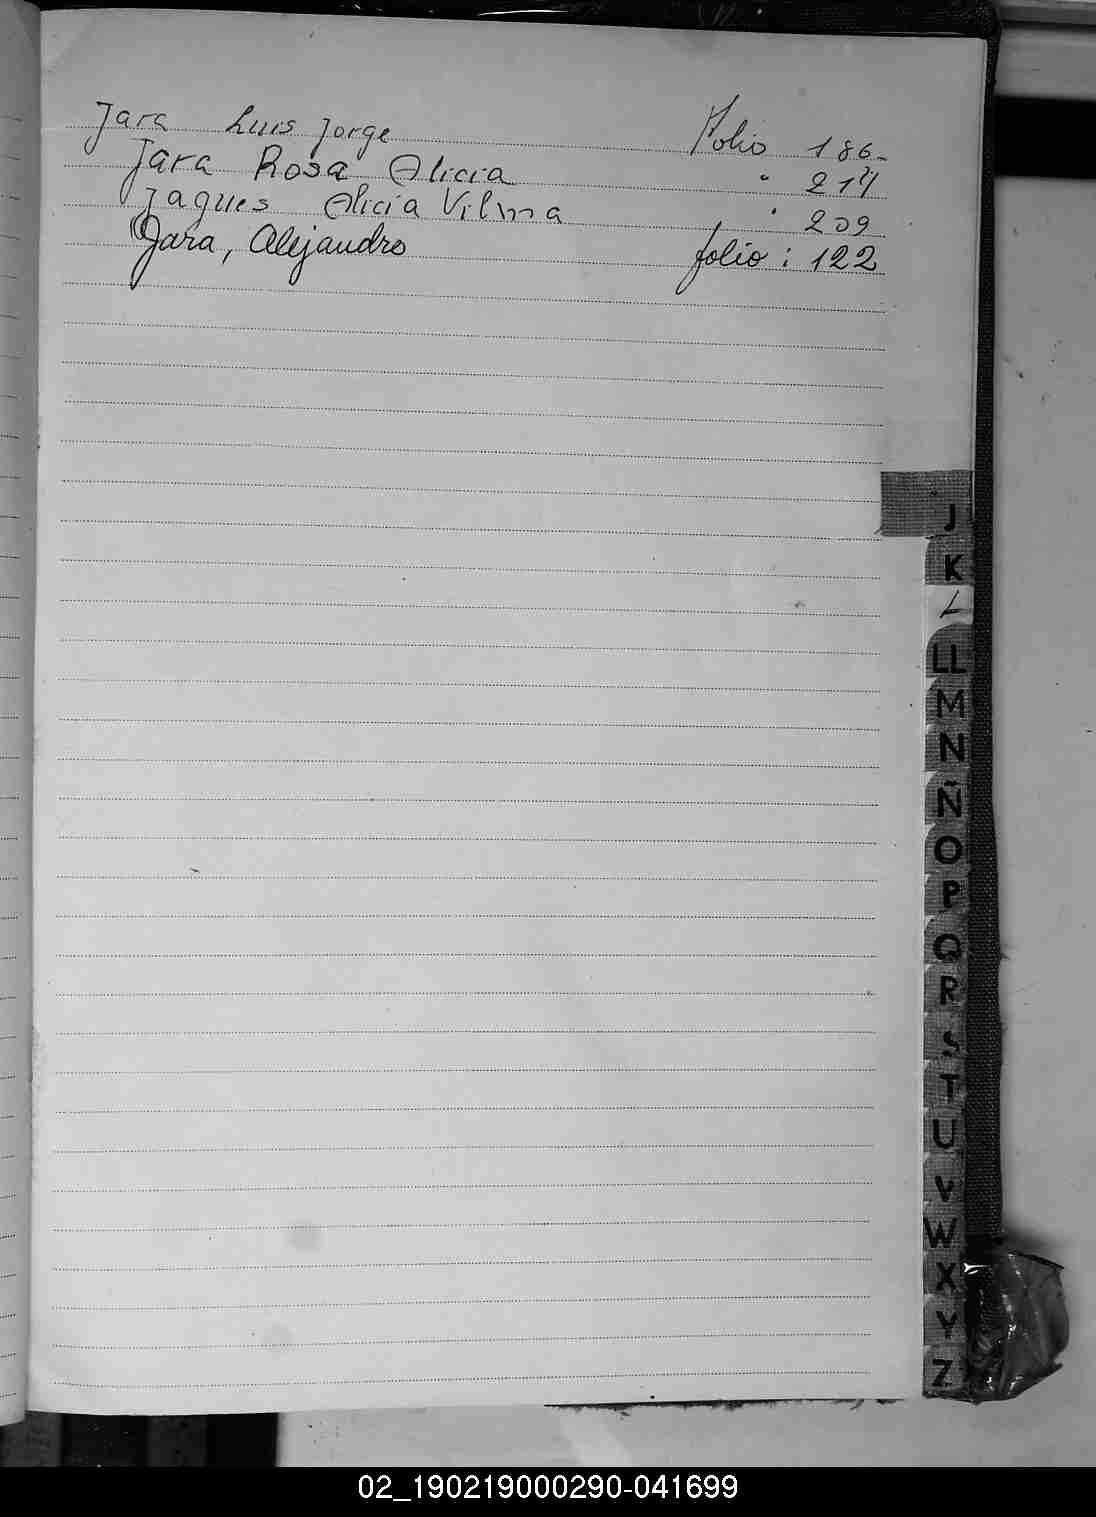 Jara Luis Jorge Folio 186-
Jara Rosa Alicia " 214
Jaques Alicia Vilma " 209
Jara, Alejandro folio : 122
J
K
L
LL
M
N
Ñ
O
P
Q
R
S
T
U
V
W
X
Y
Z
02_190219000290-041699